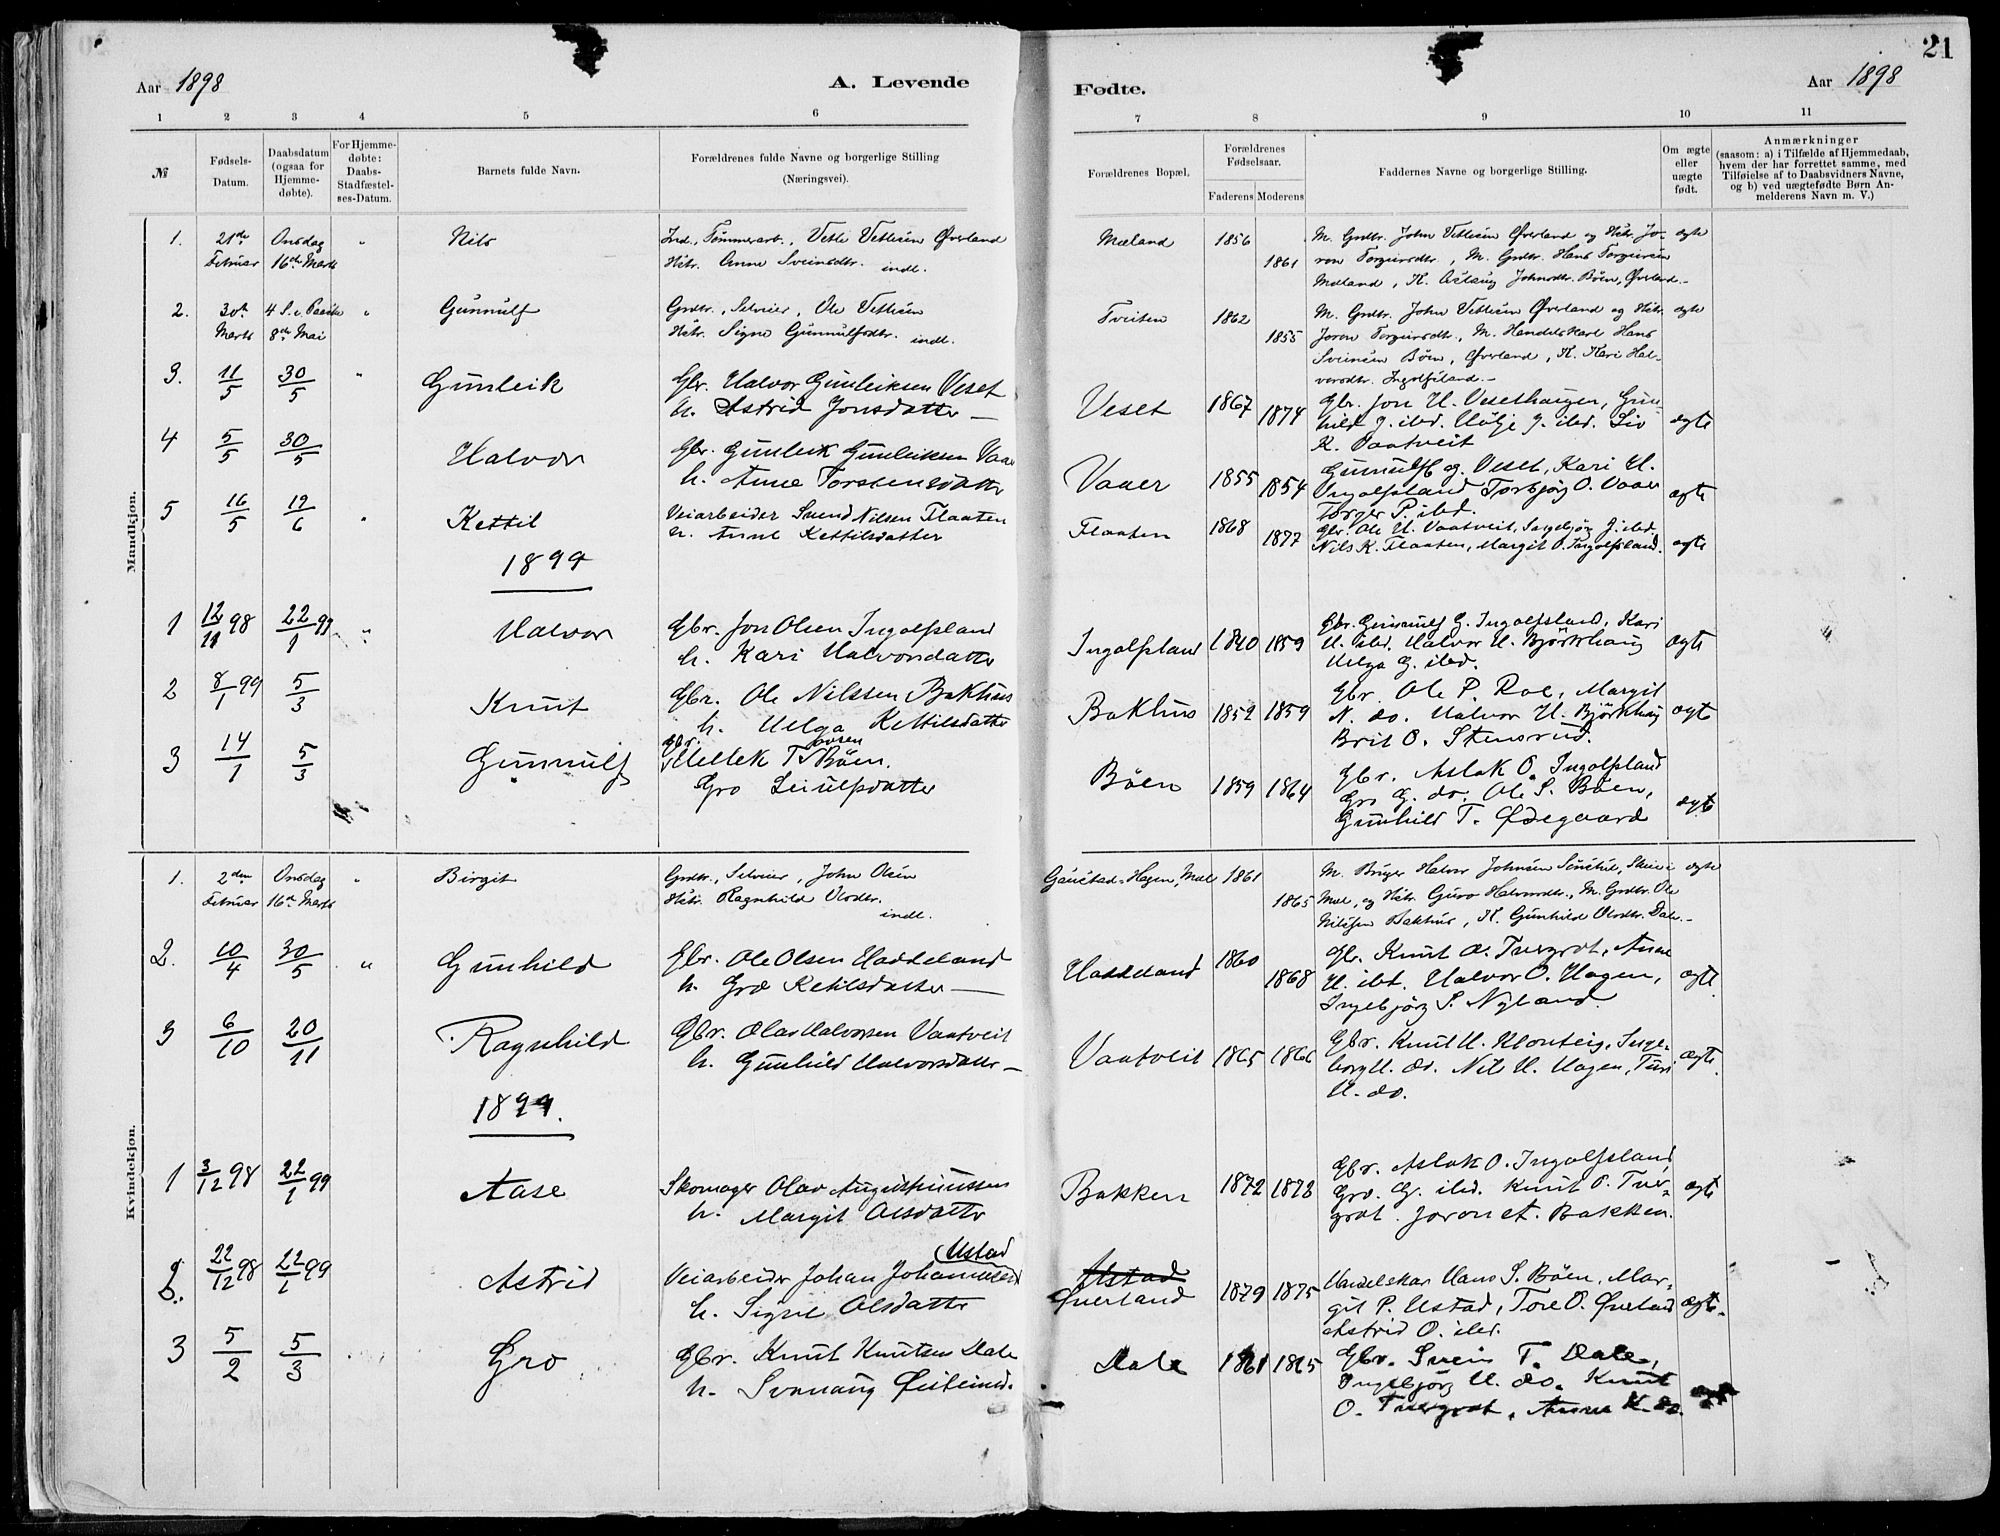 21
Aar 1898
A. Levende
Fødte.
Aar 1898
1 2 3 4 5 6 7 8 9 10 11
№
Fødsels-Datum.
Daabsdatum (ogsaa for Hjemmedøbte).
For Hjemmedøbte: Daabs-Stadfæstelses-Datum.
Barnets fulde Navn.
Forældrenes fulde Navne og borgerlige Stilling (Næringsvei).
Forældrenes Bopæl.
Forældrenes Fødselsaar.
Faderens Moderens
Faddernes Navne og borgerlige Stilling.
Om ægte eller uægte født.
Anmærkninger
(saasom: a) i Tilfælde af Hjemmedaab,
hvem der har forrettet samme, med
Tilføielse af to Daabsvidners Navne,
og b) ved uægtefødte Børn An-
melderens Navn m. V.)
Mandkjøn.
1. 21de Februar Onsdag 16de Marts " Nils Ind., Tømmerarb., Vetle Vetlesen Øverland
Hstr. Anne Sveinsdtr. indl.
Mæland 1856 1861 M. Grdbr. John Vetlesen Øverland og Hstr. Jo-
ron Torgeirsdtr., M. Grdbr. Hans Torgeirsen
Mæland, K. Aslaug Johnsdtr. Bøen, Øverland.- ægte
2. 30te Marts 4 S. e. Paaske 8de Mai " Gunnulf Grdbr., Selveier, Ole Vetlesen
Hstr. Signe Gunnulfsdtr. indl.
Tveiten 1862 1855 M. Grdbr. John Vetlesen Øverland og Hstr.
Joron Torgeirsdtr., M. Handelskarl Hans
Sveinsen Bøen, Øverland, K. Kari Hal-
vorsdtr. Ingolfsland.- ægte
3. 11/5 30/5 " Gunleik Gbr. Halvor Gunleiksen Veset
h. Astrid Jonsdatter —
Veset 1867 1874 Gbr. Jon H. Vesethaugen, Gun-
hild J. ibd. Hølje J. ibd. Liv
K. Vaatveit ægte
4 5/5 30/5 Halvor Gbr. Gunleik Gunleiksen Vaaer
h. Anne Torstensdatter
Vaaer 1855 1854 Gunnulf G. Veset, Kari H.
Ingolfsland Torbjørg O. Vaaer
Torger P. ibd. ægte
5 16/5 19/6 " Kettil Veiarbeider Svend Nilsen Flaaten
h. Anne Kettilsdatter
Flaaten 1868 1877 Gbr. Ole H. Vaatveit, Ingebjørg J. ibd.
Nils K. Flaaten, Margit O. Ingolfsland. ægte
1899
1 12/11 98 22/1 99 " Halvor Gbr. Jon Olsen Ingolfsland
h. Kari Halvorsdatter
Ingolfsland 1840 1859 Gbr. Gunnulf G. Ingolfsland, Kari
H. ibd. Halvor H. Bjørkhaug
Helga G. ibd. ægte
2 8/1 99 5/3 Knut Gbr. Ole Nilssen Bakhus
h. Helga Kettilsdatter
Bakhus 1852 1859 Gbr. Ole P. Roe, Margit
N. do. Halvor H. Bjørkhaug
Brit O. Stensrud. ægte
3 14/1 5/3 Gunnulf Gbr. Mellek T. Bøen.
Gro Leiulfsdatter
Bøen 1859 1864 Gbr. Aslak O. Ingolfsland
Gro G. do. Ole S. Bøen,
Gunhild T. Ødegaard ægte
Kvindekjøn.
1. 2den Februar Onsdag 16de Marts " Birgit Grdbr., Selveier, John Olsen
Hstr. Ragnhild Olsdtr. indl.
Gaustad, Hagen, Mæl 1861 1865 M. Bruger Halvor Johnsen
Mæl, og Hstr. Guro Halvorsdtr., M. Grdbr. Ole
Nilssen Bakhus, K. Gunhild Olsdtr. Dale.- ægte
2. 10/4 30/5 " Gunhild Gbr. Ole Olsen Haddeland
h. Gro Ketilsdatter —
Haddeland 1860 1868 Gb. Knut O. Tvergrot, Anne
H. ibd. Halvor O. Hagen,
Ingebjørg S. Nyland. ægte
3 6/10 20/11 Ragnhild Gbr. Olav Halvorsen Vaatveit
h. Gunhild Halvorsdatter —
Vaatveit 1865 1866 Gbr. Knut H. Klonteig, Inge-
borg H. do. Nils H. Hagen, Turi
H. do. ægte
1899.
1 3/12 98 22/1 99 Aase Skomager Olav
h. Margit Olsdatter
Bakken 1872 1873 Gbr. Aslak O. Ingolfsland
Gro. G. ibd. Knut O. Tver-
grot. Joron A. Bakken. ægte
2. 22/12 98 22/1 99 Astrid Veiarbeider Johan Johannesen Ustad
h. Signe Olsdatter
Ustad
Øverland 1879 1875 Handelskar Hans S. Bøen, Mar-
git P. Ustad, Tore O. Øverland
Astrid O. ibd. ægte
3 5/2 5/3 Gro Gbr. Knut Knutsen Dale
h. Svanaug
Dale 1861 1865 Gbr. Svein T. Dale,
Ingebjørg H. do. Knut
O. Tvergrot, Anne K. do. ægte